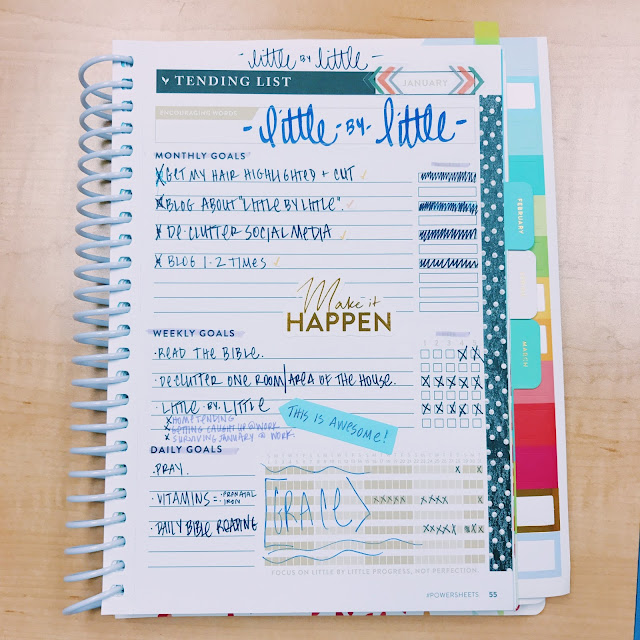 - little by little -
TENDING LIST
JANUARY
ENCOURAGING WORDS
- little - BY - little -
MONTHLY GOALS
X GET MY HAIR HIGHLIGHTED + CUT ✓
X BLOG ABOUT "LITTLE BY LITTLE". ✓
X DE-CLUTTER SOCIAL MEDIA ✓
X BLOG 1-2 TIMES ✓
FEBRUARY
Make it
HAPPEN
WEEKLY GOALS
MARCH
· READ THE BIBLE.
· DECLUTTER ONE ROOM/AREA OF THE HOUSE.
· LITTLE · BY · LITTLE
THIS IS AWESOME!
X HOME TENDING
X GETTING CAUGHT UP @ WORK
X SURVIVING JANUARY @ WORK.
DAILY GOALS
· PRAY.
· VITAMINS = · PRENATAL
· IRON
GRACE
· DAILY BIBLE READING
FOCUS ON LITTLE BY LITTLE PROGRESS, NOT PERFECTION.
#POWERSHEETS 55